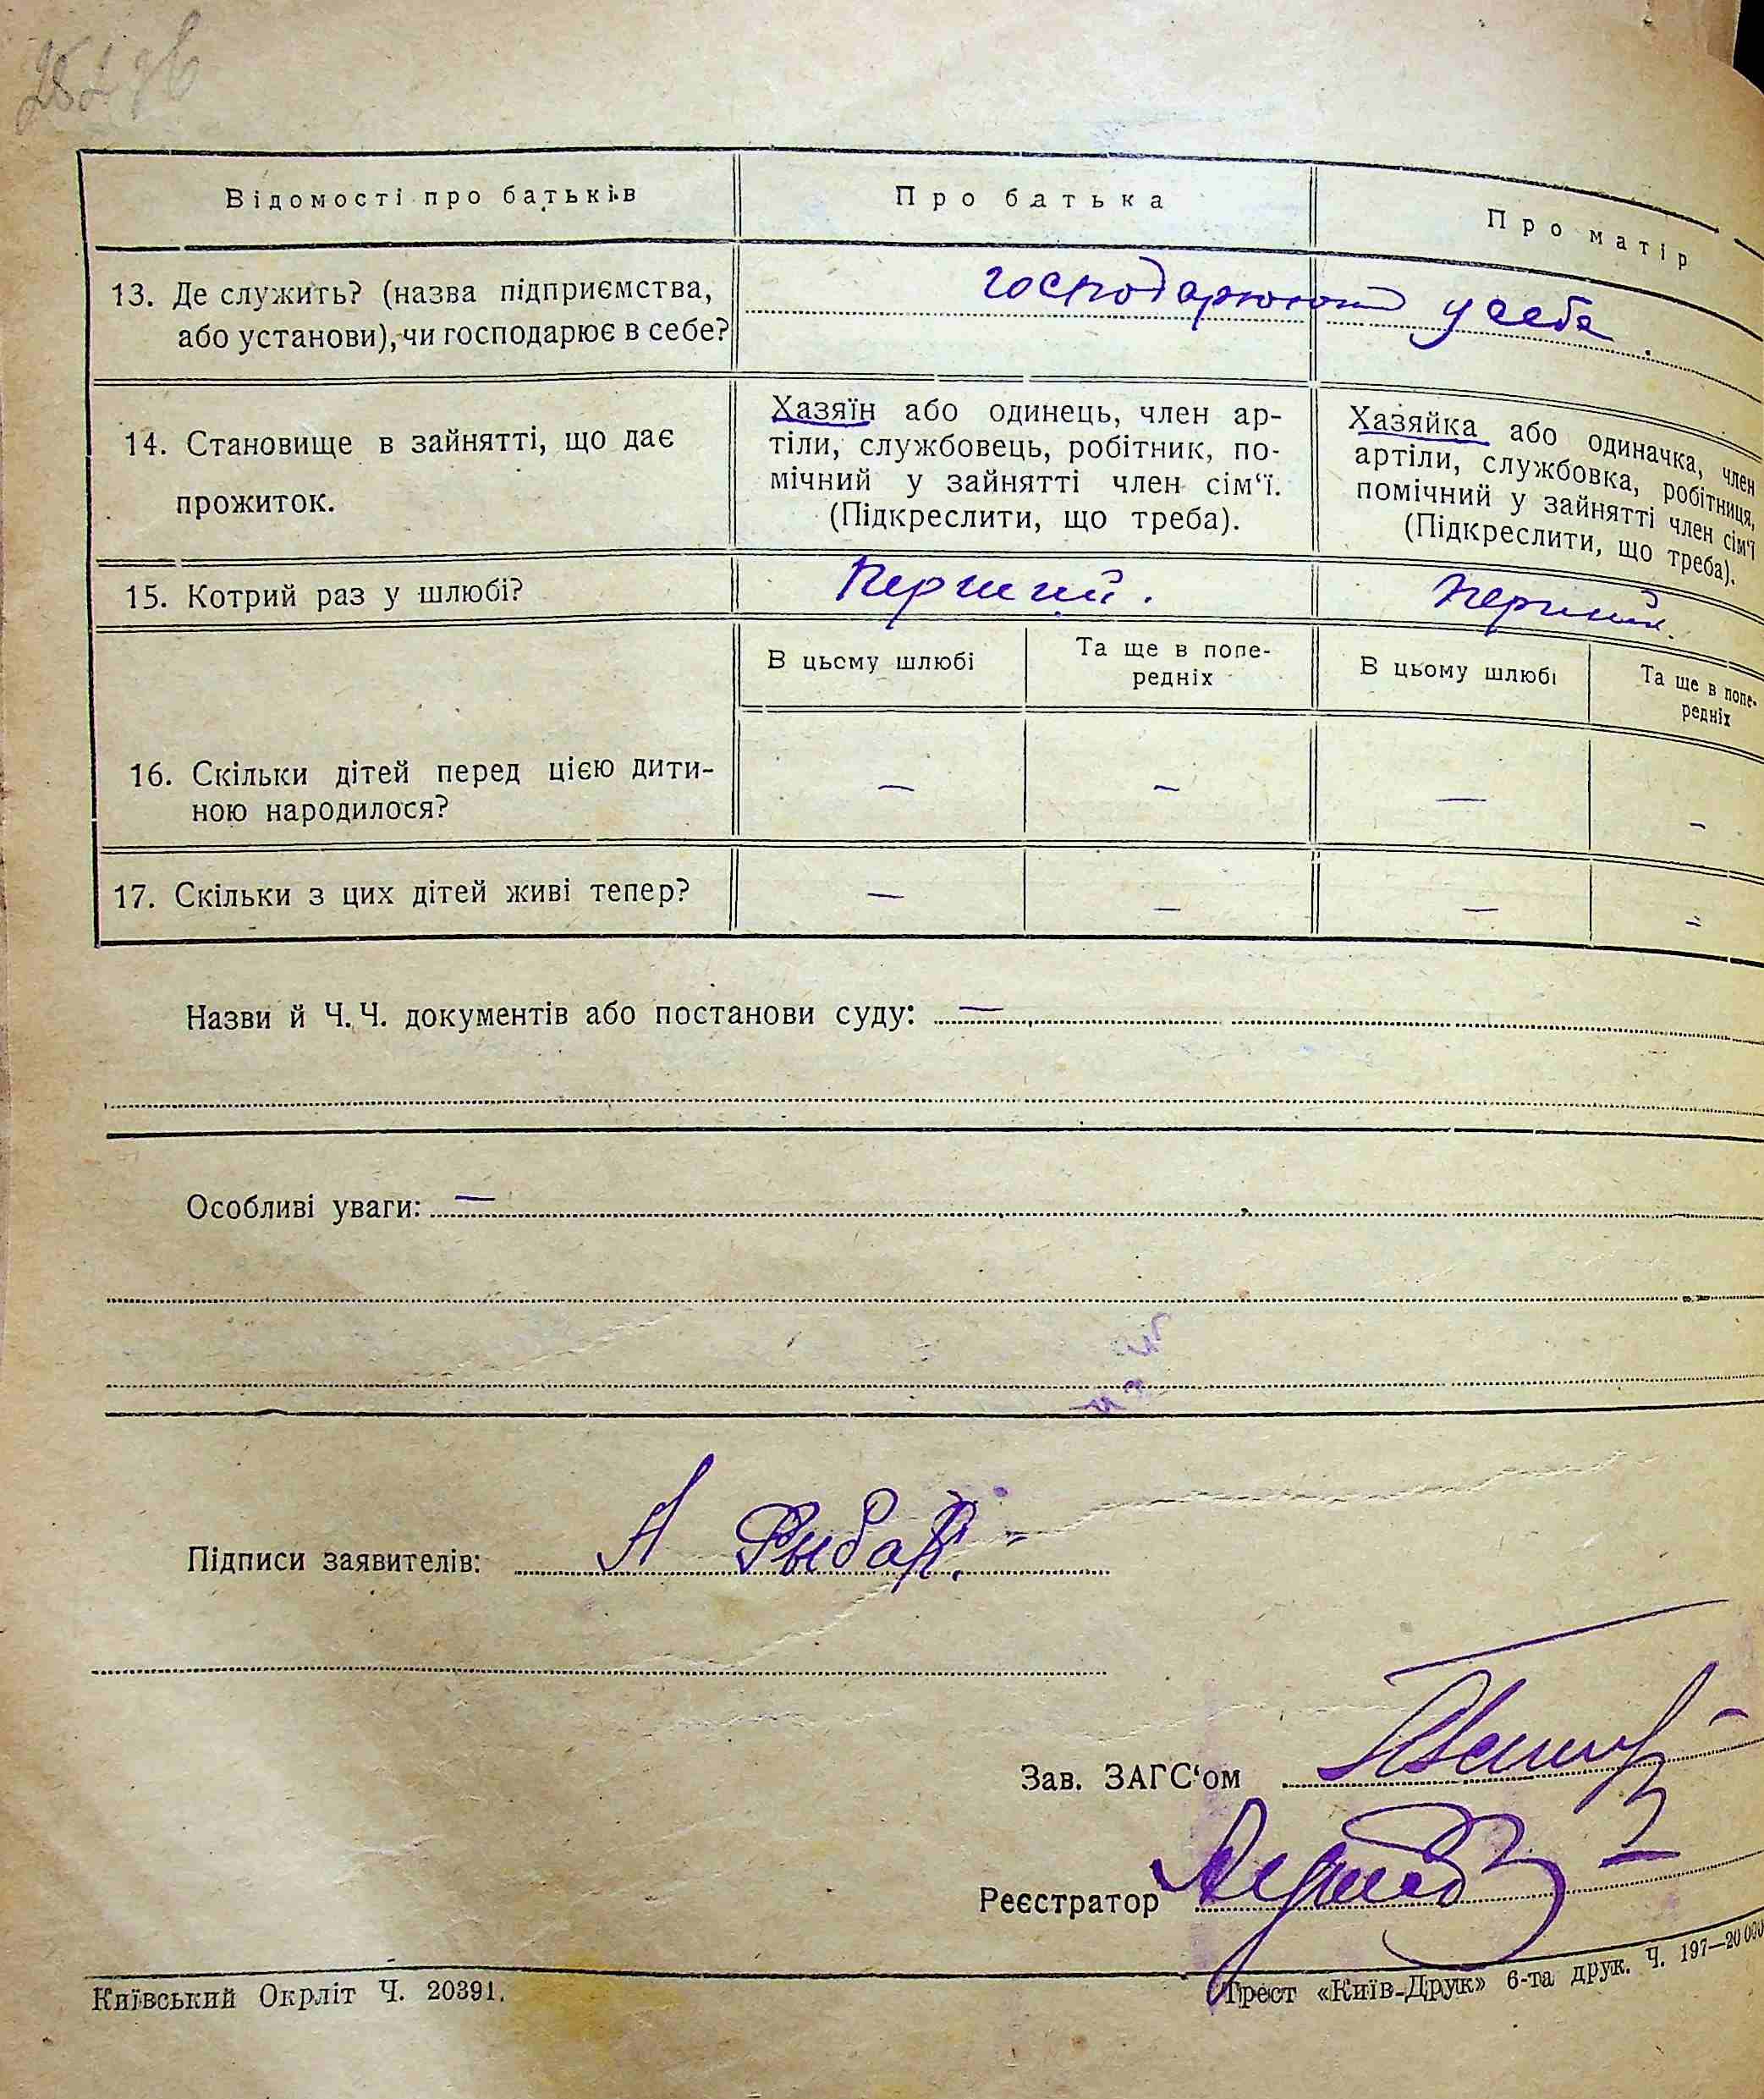 Відомості про батьків
Про батька
Про матір
13. Де служить? (назва підприємства,
або установи), чи господарює в себе?
господарюють у себе.
14. Становище в зайнятті, що дає
прожиток.
Хазяїн або одинець, член ар-
тіли, службовець, робітник, по-
мічний у зайнятті член сім‘ї.
(Підкреслити, що треба).
Хазяйка або одиначка, член
артіли, службовка, робітниця,
помічний у зайнятті член сім‘ї
(Підкреслити, що треба).
15. Котрий раз у шлюбі?
Перший.
перший.
В цьому шлюбі
Та ще в попе-
редніх
В цьому шлюбі
Та ще в попе-
редніх
16. Скільки дітей перед цією дити-
ною народилося?
—
—
—
—
17. Скільки з цих дітей живі тепер?
—
—
—
—
Назви й Ч. Ч. документів або постанови суду: —
Особливі уваги: —
Підписи заявителів: А Рыбак
Зав. ЗАГС‘ом
Реєстратор
Київський Окрліт Ч. 20391.
Трест «Київ-Друк» 6-та друк. Ч. 197—20000